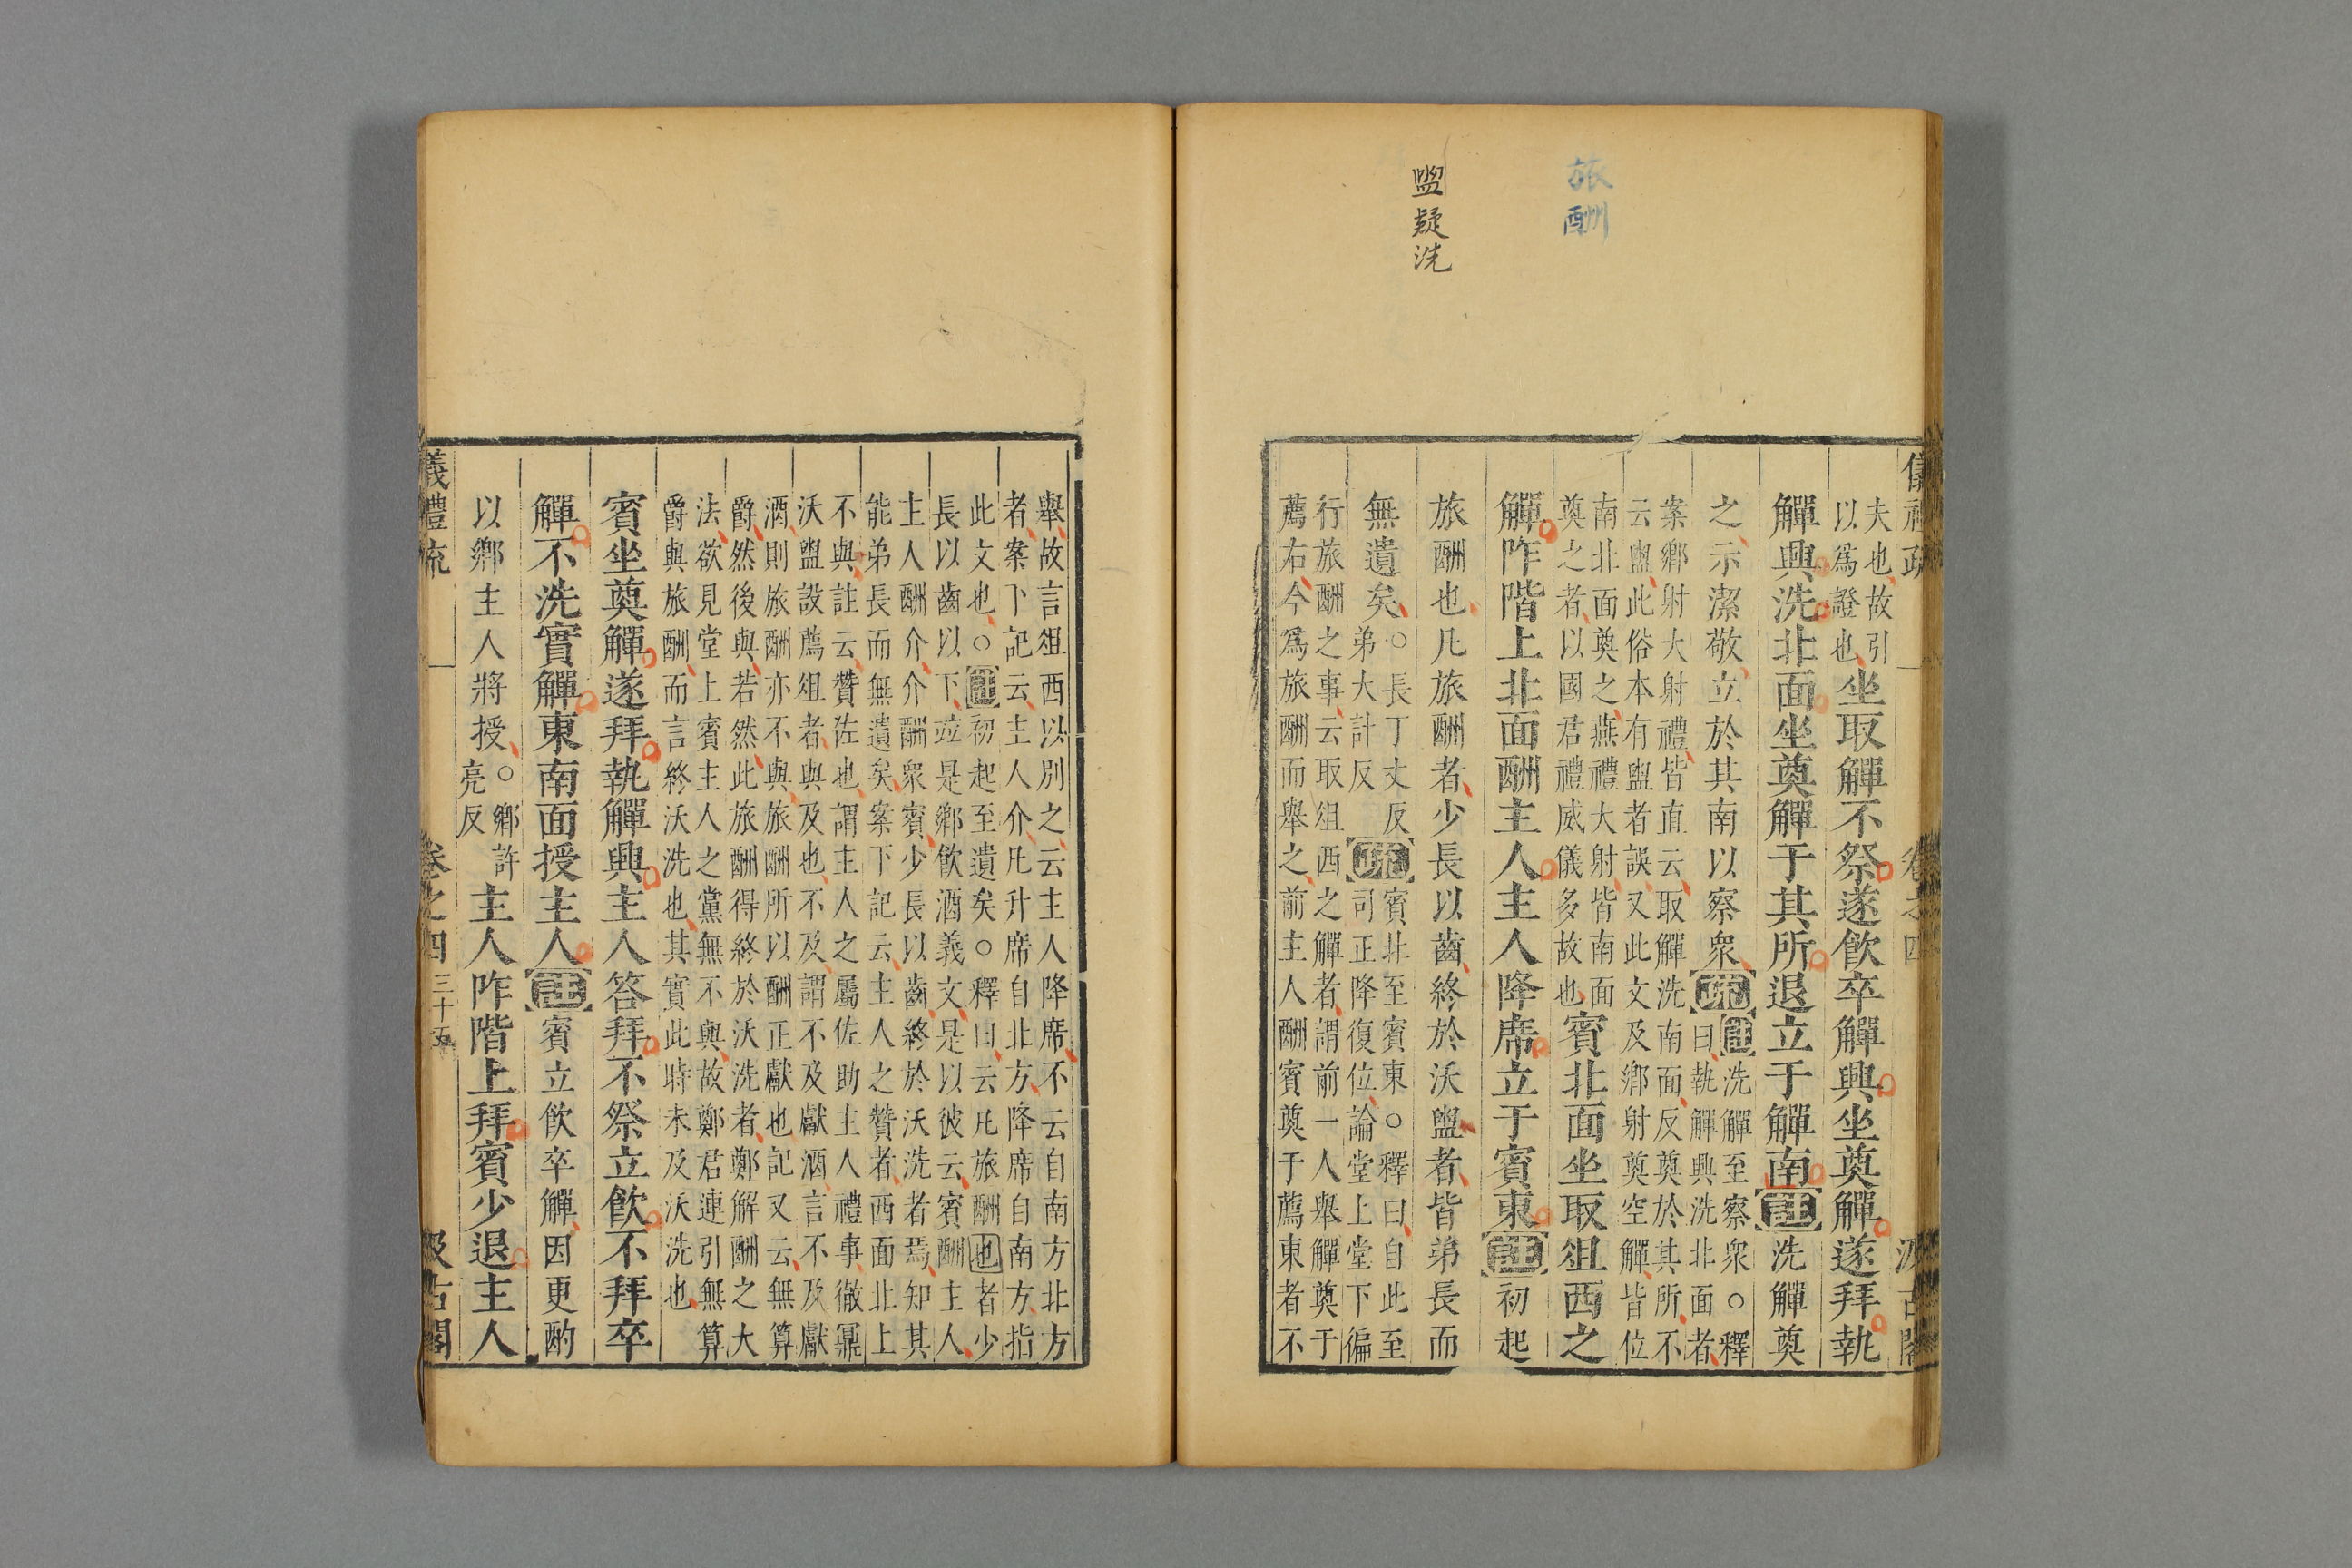 旅酬
盥疑洗
儀禮疏　卷之四　汲古閣
夫也故引
以爲證也
坐取觶不祭遂飮卒觶興坐奠觶遂拜執
觶興洗北面坐奠觶于其所退立于觶南註洗觶奠
之示潔敬立於其南以察衆疏
註洗觶至察衆○釋
曰執觶興洗北面者
案鄉射大射禮皆直云取觶洗南面反奠於其所不
云盥此俗本有盥者誤又此文及鄉射奠空觶皆位
南北面奠之燕禮大射皆南面
奠之者以國君禮威儀多故也
賓北面坐取俎西之
觶阼階上北面酬主人主人降席立于賓東註初起
旅酬也凡旅酬者少長以齒終於沃盥者皆弟長而
無遺矣
○長丁丈反
弟大計反
疏
賓北至賓東○釋曰自此至
司正降復位論堂上堂下徧
行旅酬之事云取俎西之觶者謂前一人舉觶奠于
薦右今爲旅酬而舉之前主人酬賓奠于薦東者不
舉故言俎西以別之云主人降席不云自南方北方
者案下記云主人介凡升席自北方降席自南方指
此文也○註初起至遺矣○釋曰云凡旅酬也者少
長以齒以下竝是鄉飮酒義文是以彼云賓酬主人
主人酬介介酬衆賓少長以齒終於沃洗者焉知其
能弟長而無遺矣案下記云主人之贊者西面北上
不與註云贊佐也謂主人之屬佐助主人禮事徹鼏
沃盥設薦俎者與及也不及謂不及獻酒言不及獻
酒則旅酬亦不與旅酬所以酬正獻也記又云無算
爵然後與若然此旅酬得終於沃洗者鄭解酬之大
法欲見堂上賓主人之黨無不與故鄭君連引無算
爵與旅酬而言終沃洗也其實此時未及沃洗也
賓坐奠觶遂拜執觶興主人答拜不祭立飮不拜卒
觶不洗實觶東南面授主人註賓立飮卒觶因更酌
以鄉主人將授
○鄉許
亮反
主人阼階上拜賓少退主人
儀禮疏　卷之四　三十五　汲古閣